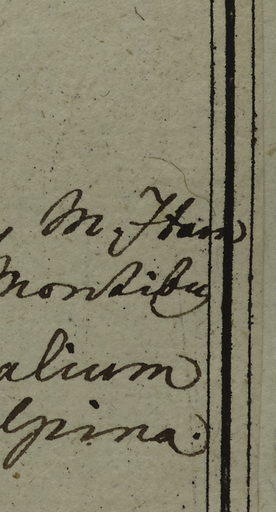 , M. Ham
Montibu
alium
lpina.